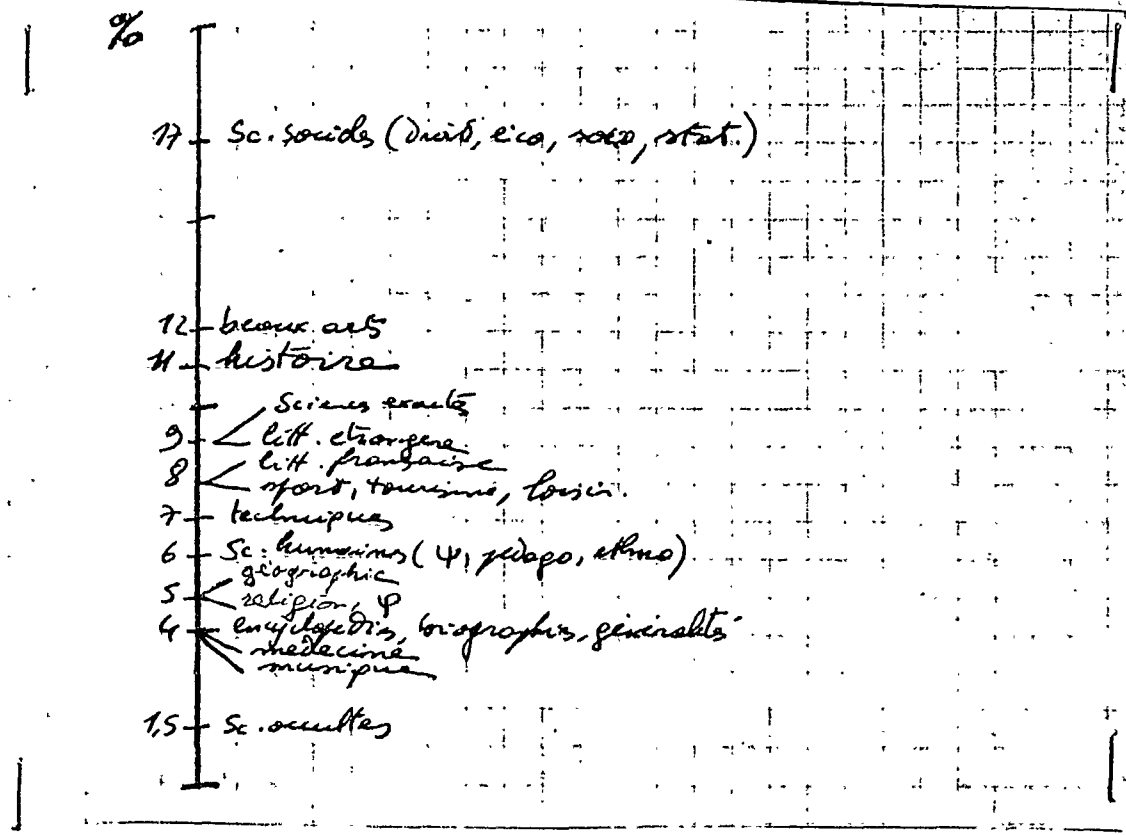 %
17 Sc. sociales (Droit, éco, socio, stat.)
12 beaux arts
11 histoire
Sciences exactes
9 litt. etrangere
litt. française
8 sport, tourisme, loisir.
7 techniques
6 Sc. humaines (ψ, pédago, ethno)
géographie
5 religion, φ
4 encyclopédies, biographies, généralités
médecine
musique
1,5 Sc. occultes